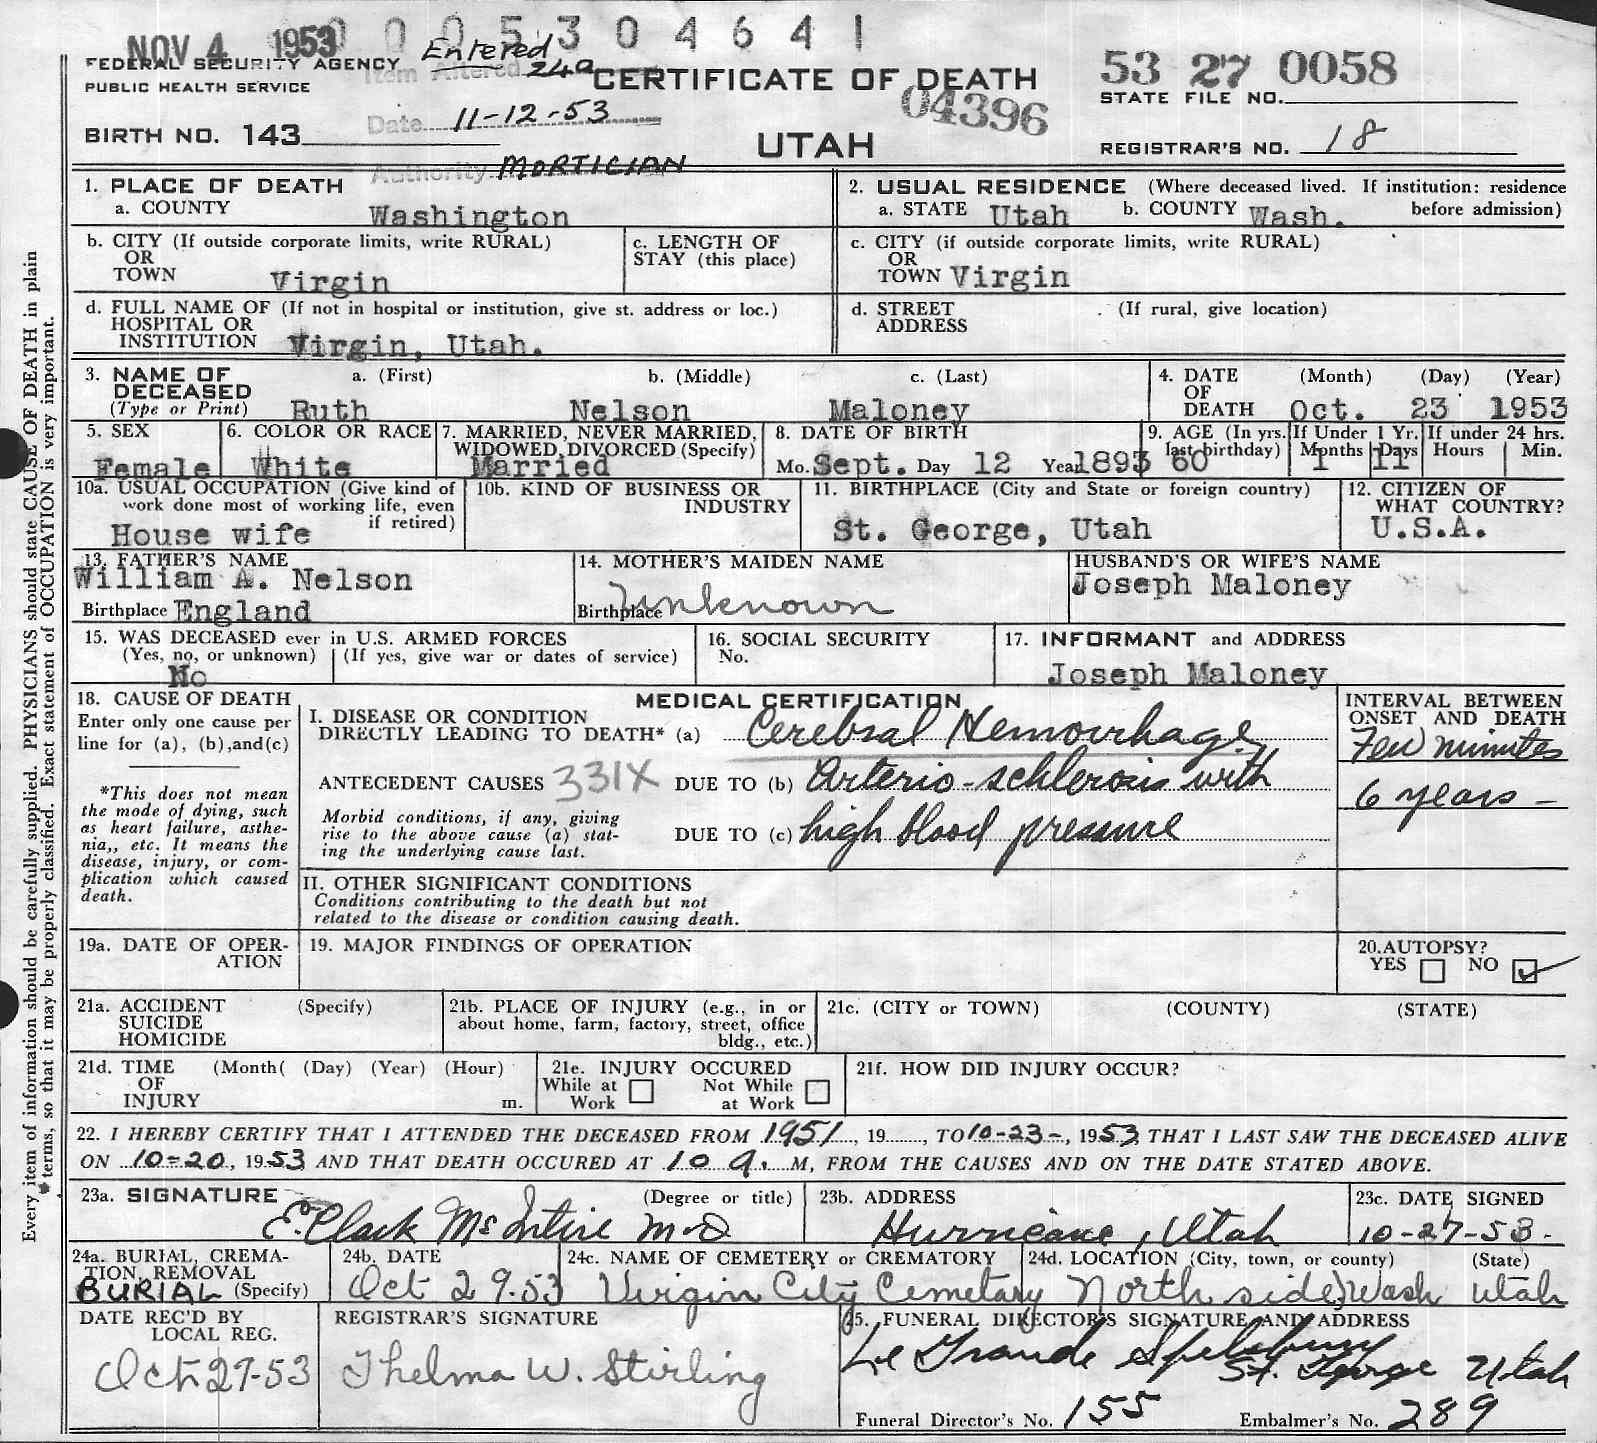 NOV 4 1953 0 0 0 5 3 0 4 6 4 1
FEDERAL SECURITY AGENCY
PUBLIC HEALTH SERVICE
Entered
Item Altered 24a
CERTIFICATE OF DEATH
04396
UTAH
53 27 0058
STATE FILE NO.
BIRTH NO. 143
Date 11-12-53
Authority MORTICIAN
REGISTRAR'S NO. 18
1. PLACE OF DEATH
a. COUNTY Washington
2. USUAL RESIDENCE (Where deceased lived. If institution: residence before admission)
a. STATE Utah b. COUNTY Wash.
b. CITY (If outside corporate limits, write RURAL)
OR
TOWN Virgin
c. LENGTH OF
STAY (this place)
c. CITY (if outside corporate limits, write RURAL)
OR
TOWN Virgin
d. FULL NAME OF (If not in hospital or institution, give st. address or loc.)
HOSPITAL OR
INSTITUTION Virgin, Utah.
d. STREET (If rural, give location)
ADDRESS
3. NAME OF a. (First) b. (Middle) c. (Last)
DECEASED
(Type or Print) Ruth Nelson Maloney
4. DATE (Month) (Day) (Year)
OF
DEATH Oct. 23 1953
5. SEX
Female
6. COLOR OR RACE
White
7. MARRIED, NEVER MARRIED,
WIDOWED, DIVORCED (Specify)
Married
8. DATE OF BIRTH
Mo. Sept. Day 12 Year 1893
9. AGE (In yrs.
last birthday) 60
If Under 1 Yr.
Months 1 Days 11
If under 24 hrs.
Hours Min.
10a. USUAL OCCUPATION (Give kind of
work done most of working life, even
if retired)
House wife
10b. KIND OF BUSINESS OR
INDUSTRY
11. BIRTHPLACE (City and State or foreign country)
St. George, Utah
12. CITIZEN OF
WHAT COUNTRY?
U.S.A.
13. FATHER'S NAME
William A. Nelson
Birthplace England
14. MOTHER'S MAIDEN NAME
Birthplace Unknown
HUSBAND'S OR WIFE'S NAME
Joseph Maloney
15. WAS DECEASED ever in U.S. ARMED FORCES
(Yes, no, or unknown) (If yes, give war or dates of service)
No
16. SOCIAL SECURITY
No.
17. INFORMANT and ADDRESS
Joseph Maloney
18. CAUSE OF DEATH
Enter only one cause per
line for (a), (b),and(c)
*This does not mean
the mode of dying, such
as heart failure, asthe-
nia,, etc. It means the
disease, injury, or com-
plication which caused
death.
MEDICAL CERTIFICATION
I. DISEASE OR CONDITION
DIRECTLY LEADING TO DEATH* (a) Cerebral Hemorrhage
ANTECEDENT CAUSES 331X DUE TO (b) Arterio-schlerosis with
Morbid conditions, if any, giving
rise to the above cause (a) stat-
ing the underlying cause last.
DUE TO (c) high blood pressure
INTERVAL BETWEEN
ONSET AND DEATH
Few minutes
6 years -
II. OTHER SIGNIFICANT CONDITIONS
Conditions contributing to the death but not
related to the disease or condition causing death.
19a. DATE OF OPER-
ATION
19. MAJOR FINDINGS OF OPERATION
20. AUTOPSY?
YES NO
21a. ACCIDENT (Specify)
SUICIDE
HOMICIDE
21b. PLACE OF INJURY (e.g., in or
about home, farm, factory, street, office
bldg., etc.)
21c. (CITY or TOWN) (COUNTY) (STATE)
21d. TIME (Month( (Day) (Year) (Hour)
OF
INJURY m.
21e. INJURY OCCURED
While at Not While
Work at Work
21f. HOW DID INJURY OCCUR?
22. I HEREBY CERTIFY THAT I ATTENDED THE DECEASED FROM 1951, 19......, TO 10-23-, 1953 THAT I LAST SAW THE DECEASED ALIVE
ON 10-20, 1953 AND THAT DEATH OCCURED AT 10 a. M, FROM THE CAUSES AND ON THE DATE STATED ABOVE.
23a. SIGNATURE (Degree or title)
E. Clark McIntire M.D
23b. ADDRESS
Hurricane, Utah
23c. DATE SIGNED
10-27-53-
24a. BURIAL, CREMA-
TION, REMOVAL
BURIAL (Specify)
24b. DATE
Oct 29-53
24c. NAME OF CEMETERY or CREMATORY
Virgin City Cemetary
24d. LOCATION (City, town, or county) (State)
North side, Wash Utah
DATE REC'D BY
LOCAL REG.
Oct-27-53
REGISTRAR'S SIGNATURE
Thelma W. Stirling
25. FUNERAL DIRECTOR'S SIGNATURE AND ADDRESS
Le Grande Spilsbury
St. George Utah
Funeral Director's No. 155 Embalmer's No. 289
Every item of information should be carefully supplied. PHYSICIANS should state CAUSE OF DEATH in plain
terms, so that it may be properly classified. Exact statement of OCCUPATION is very important.